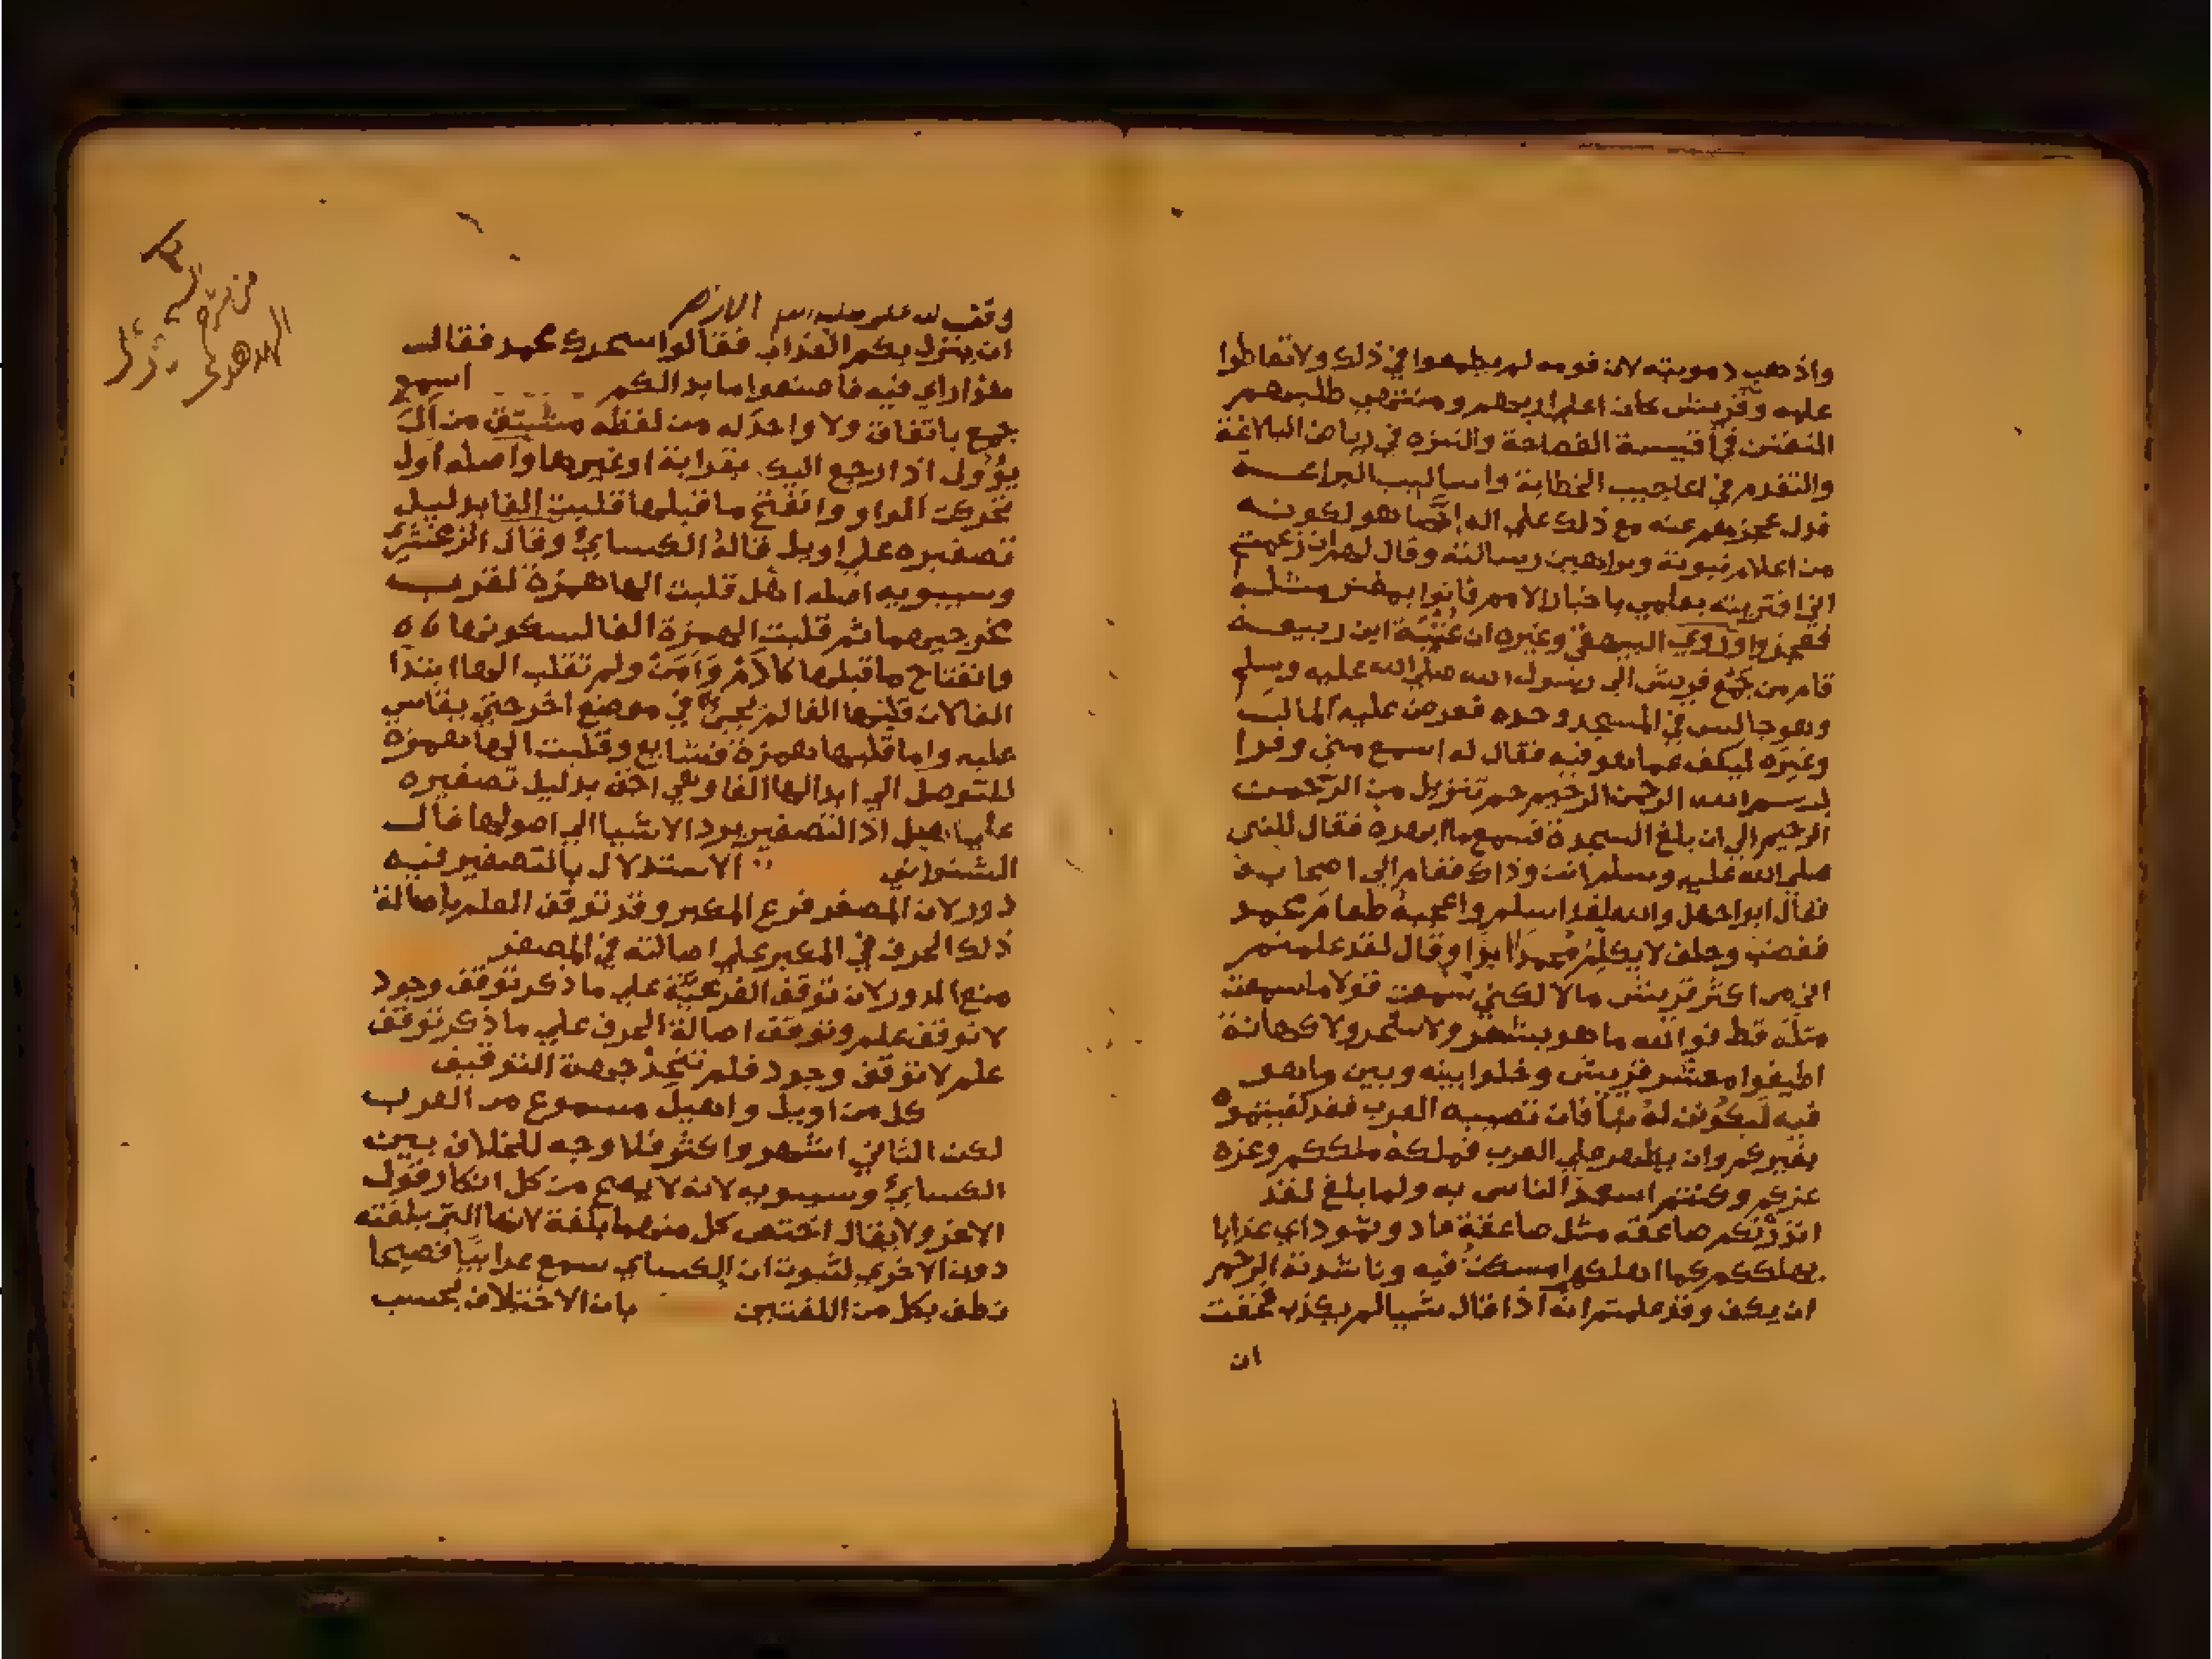 واذهب دمويته لان قومه لم يطمعوا في ذلك ولا تعاطوا
عليه وقريش كان اعلم اربهم ومنتهى طلبهم
التفنن في اقيسة الفصاحة والنزه في رياض البلاغة
والتقدم في اعاجيب الخطابة واساليب البراعــة
فدل عجزهم عنه مع ذلك علي انه انما هو لكونــه
من اعلام نبوته وبراهين رسالته وقال لهم ان زعمتم
اني افتريته بعلمي باخبار الامم فاتوا بمفتر مثلــه
فعجزوا وروي البيهقي وغيره ان عتبة ابن ربيعــة
قام من مجمع قريش الي رسول الله صلي الله عليه وسلم
وهو جالس في المسجد وحده فعرض عليه المالــ
وغيره ليكف عما هو فيه فقال له اسمع مني وقرا
بسم الله الرحمن الرحيم حم تنزيل من الرحمن
الرحيم الي ان بلغ السجدة فسمع ما ابهره فقال للنبي
صلي الله عليه وسلم انت وذاك فقام الي اصحابه
فقال ابوا جهل والله لقد اسلم واعجبه طعام محمد
فغضب وحلف لا يكلم محمدا ابدا وقال لقد علمتم
اني من اكثر قريش مالا لكني سمعت قولا ما سمعت
مثله قط فوالله ما هو بشعر ولا سحر ولا كهانة
اطيعوا معشر قريش وخلوا بينه وبين ما هو
فيه ليكونن له نبأ فان تصبه العرب فقد كفيتموه
بغيركم وان يظهر علي العرب فملكه ملككم وعزه
عزكم وكنتم اسعد الناس به ولما بلغ لقد
انذرتكم صاعقة مثل صاعقة عاد وثمود اي عذابا
يهلككم كما اهلكهم امسكت فيه وناشدته الرحم
ان يكف وقد علمتم انه اذا قال شيا لم يكذب فخفت
ان
ان ينزل بكم العذاب فقالوا سحرك محمد فقالــ
هذا راي فيه فاصنعوا ما بدا لكم اسم
جمع باتفاق ولا واحد له من لفظه مشتق من آل
يؤول اذا رجع اليك بقرابة او غيرها واصله اول
تحركت الواو وانفتح ما قبلها قلبت الفا بدليل
تصغيره علي اويل قاله الكسائي وقال الزمخشري
وسيبويه اصله اهل قلبت الها همزة لقرب
مخرجيهما ثم قلبت الهمزة الفا لسكونها
وانفتاح ما قبلها كآدم وآمن ولم تقلب الها ابتدا
الفا لان قلبها الفا لم يجئ في موضع اخر حتي يقاس
عليه واما قلبها همزة فشايع وقلبت الها همزة
للتوصل الي ابدالها الفا وهي اخف بدليل تصغيره
علي اهيل اذ التصغير يرد الاشيا الي اصولها قالــ
الشنواني الاستدلال بالتصغير فيه
دور لان المصغر فرع المكبر وقد توقف العلم باصالة
ذلك الحرف في المكبر علي اصالته في المصغر
منع الدور لان توقف الفرعية علي ما ذكر توقف وجود
لا توقف علم وتوقف اصالة الحرف علي ما ذكر توقف
علم لا توقف وجود فلم تتحد جهة التوقيف
كل من اويل واهيل مسموع من العرب
لكن الثاني اشهر واكثر فلا وجه للخلاف بين
الكسائي وسيبويه لانه لا يصح من كل انكار قول
الاخر ولا يقال اختص كل منهما بلغة لانها التي بلغته
دون الاخري لثبوت ان الكسائي سمع عرابيا فصيحا
نطق بكل من اللغتين بان الاختلاف بحسب